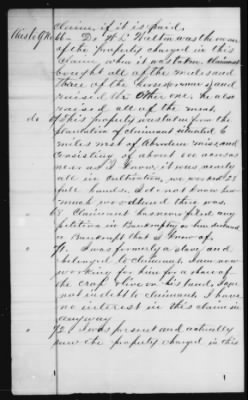 claim, if it is paid.
66 Dr W L Weltin was the owner
of the property charged in this
claim when it was taken. Claimant
bought all of the mules and
three of the horses some and
raised the other one. he also
raised all of the meat.
do 67 This property was taken from the
plantation of claimant situated 6
miles west of Aberdeen miss, and
consisting of about 600 acres as
near as I know, it was mostly
all in cultivation, we worked 25
full hands. I do not know how
much woodland there was.
" 68 Claimant has never filed any
petition in Bankruptcy or been declared
a Bankrupt that I know of.
" 71. I was formerly a slave, and
belonged to claimant. I am now
working for him for a share of
the crop I live on his land. I am
not in debt to claimant. I have
no interest in this claim in
anyway
" 72 I was present and actually
saw the property charged in this